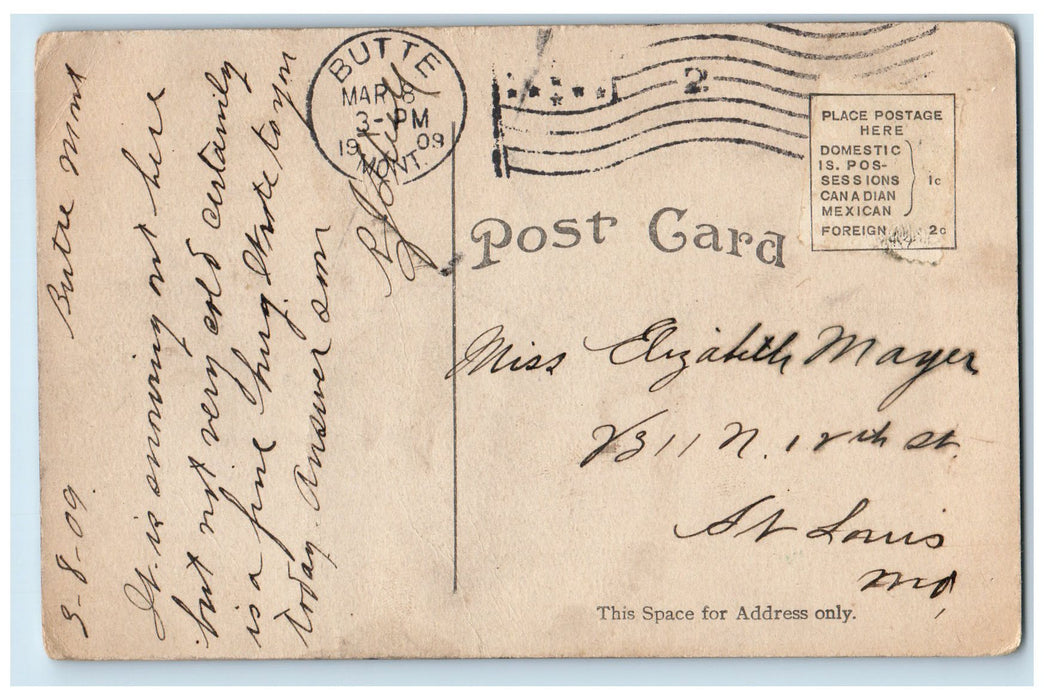 3-8-09 Butte Mont
It is snowing out here
but not very cold certainly
is a fine burg. Wrote to you
today. Answer soon
BUTTE
MAR 8
3-PM
1909
MONT.
2
PLACE POSTAGE
HERE
DOMESTIC
IS. POS-
SESSIONS
CANADIAN
MEXICAN
1c
FOREIGN 2c
Post Card
Miss Elizabeth Mayer
2311 N. 12th St.
St Louis
Mo,
This Space for Address only.